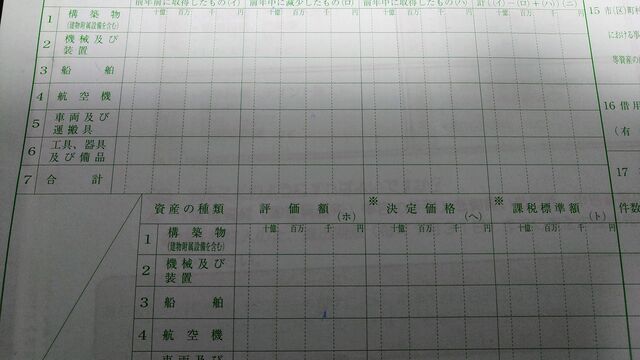 前年前に取得したもの(イ) 前年中に減少したもの(ロ) 前年中に取得したもの(ハ) 計((イ)-(ロ)+(ハ))(ニ)
十億 百万 千 円 十億 百万 千 円 十億 百万 千 円 十億 百万 千 円
1 構築物
(建物附属設備を含む)
2 機械及び
装置
3 船舶
4 航空機
5 車両及び
運搬具
6 工具、器具
及び備品
7 合計
15 市(区)町村
における事
等資産の
16 借用
(有
17
件数
資産の種類 評価額(ホ) ※決定価格(ヘ) ※課税標準額(ト)
十億 百万 千 円 十億 百万 千 円 十億 百万 千 円
1 構築物
(建物附属設備を含む)
2 機械及び
装置
3 船舶
4 航空機
車両及び